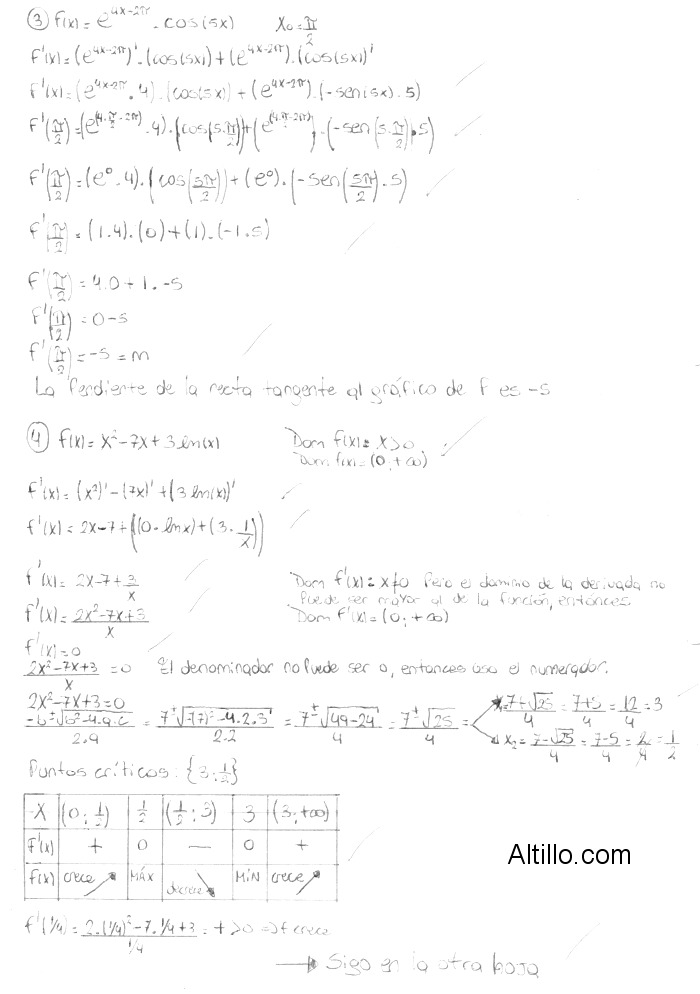 ③ f(x)= e^(4x-2π) . cos(5x)   X₀=π/2
f'(x)= (e^(4x-2π))' . (cos(5x)) + (e^(4x-2π)) . (cos(5x))'
f'(x)= (e^(4x-2π) . 4) . (cos(5x)) + (e^(4x-2π)) . (-sen(5x) . 5)
f'(π/2)= (e^(4.π/2-2π) . 4) . (cos(5.π/2)) + (e^(4.π/2-2π)) . (-sen(5.π/2).5)
f'(π/2)= (e⁰ . 4) . (cos(5π/2)) + (e⁰) . (-sen(5π/2) . 5)
f'(π/2)= (1.4) . (0) + (1) . (-1.5)
f'(π/2)= 4.0 + 1 . -5
f'(π/2)= 0-5
f'(π/2)= -5 = m
La Pendiente de la recta tangente al gráfico de f es -5
④ f(x)= x²-7x+3 ln(x)   Dom f(x)= x>0
Dom f(x)= (0;+∞)
f'(x)= (x²)' - (7x)' + (3 ln(x))'
f'(x)= 2x-7+((0.lnx)+(3.1/x))
f'(x)= 2x-7+3/x   Dom f'(x)= x≠0 Pero el dominio de la derivada no
Puede ser mayor al de la función, entónces
f'(x)= (2x²-7x+3)/x   Dom f'(x)= (0;+∞)
f'(x)=0
(2x²-7x+3)/x =0   El denominador no Puede ser 0, entonces uso el numerador.
2x²-7x+3=0
(-b±√(b²-4.a.c))/(2.a) = (7±√((-7)²-4.2.3))/(2.2) = (7±√(49-24))/4 = (7±√25)/4 = x₁=(7+√25)/4=(7+5)/4=12/4=3
x₂=(7-√25)/4=(7-5)/4=2/4=1/2
Puntos críticos: {3;1/2}
X (0;1/2) 1/2 (1/2;3) 3 (3;+∞)
f'(x) + 0 — 0 +
f(x) crece MÁX decrece MÍN crece
f'(1/4)= (2.(1/4)²-7.1/4+3)/(1/4) = + >0 ⇒ f crece
→ Sigo en la otra hoja
Altillo.com